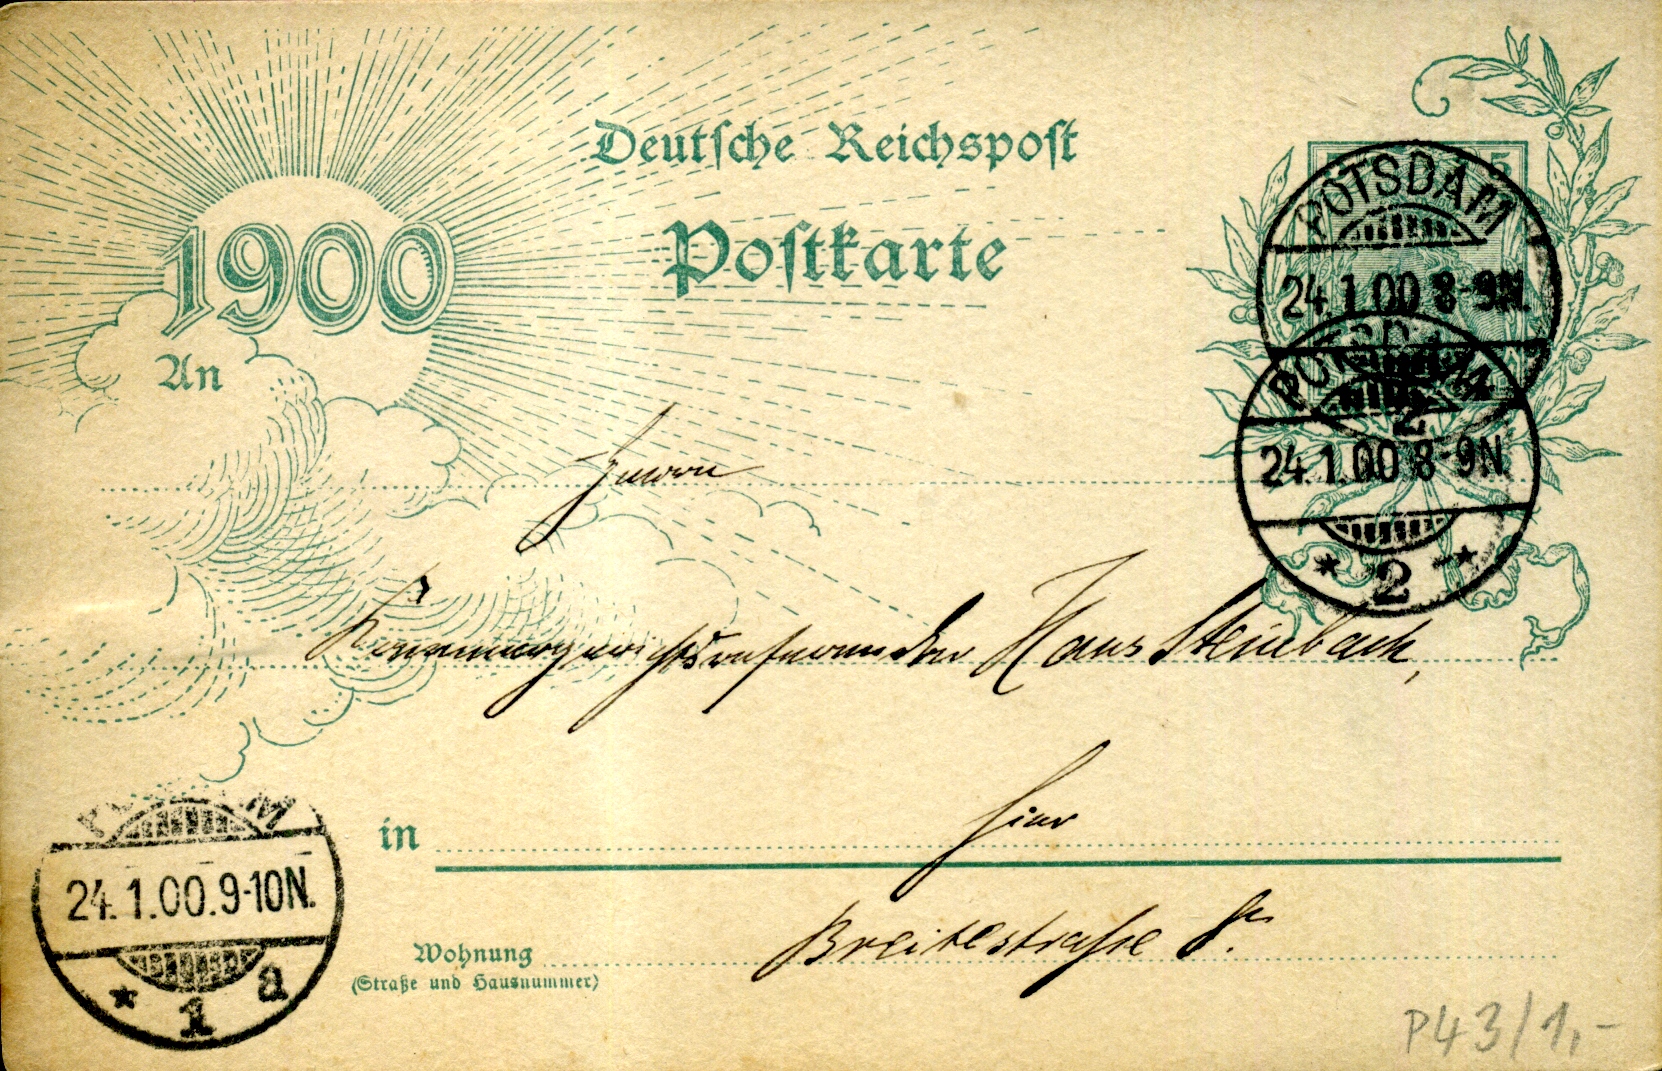 Deutsche Reichspost
Postkarte
1900
5
POTSDAM
24.1.00 8-9N.
2
POTSDAM
24.1.00 8-9N.
* 2 *
An
Herrn
Kammergerichtsreferendar Hans Steinbach,
in hier
Wohnung Breitestraße 8.
(Straße und Hausnummer)
POTSDAM
24.1.00.9-10N.
* 1 a
P43/1,-